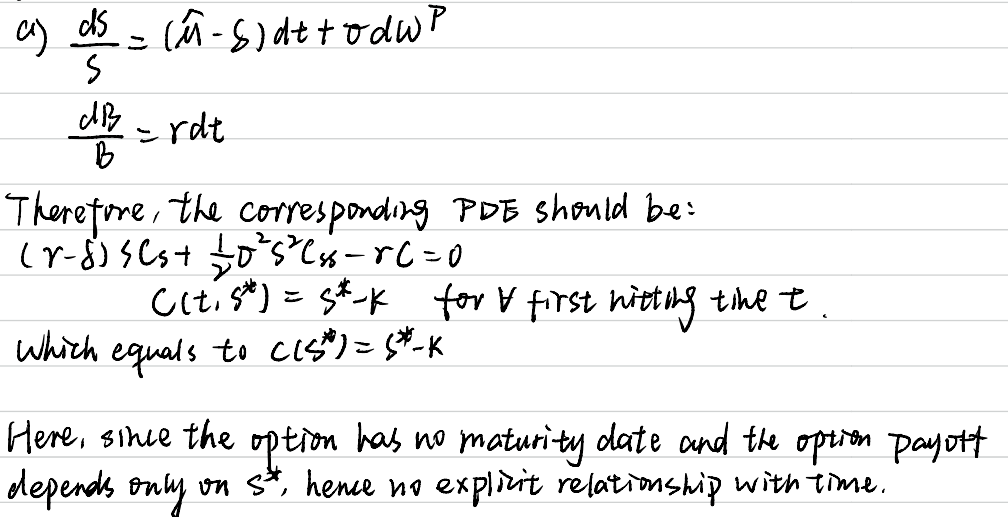 a) dS/S = (μ̂ - δ) dt + σ dW^P
dB/B = r dt
Therefore, the corresponding PDE should be:
(r-δ) S C_S + 1/2 σ² S² C_SS - r C = 0
C(t, S*) = S* - K for ∀ first hitting time t.
Which equals to C(S*) = S* - K
Here, since the option has no maturity date and the option payoff
depends only on S*, hence no explicit relationship with time.